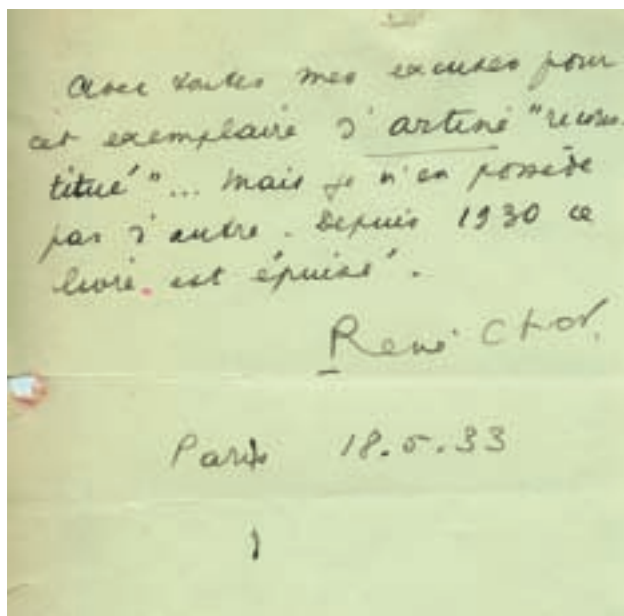 Avec toutes mes excuses pour
cet exemplaire d'artine "recons-
titué"... mais je n'en possède
pas d'autre. Depuis 1930 ce
livre est épuisé.
René Char.
Paris 18.5.33